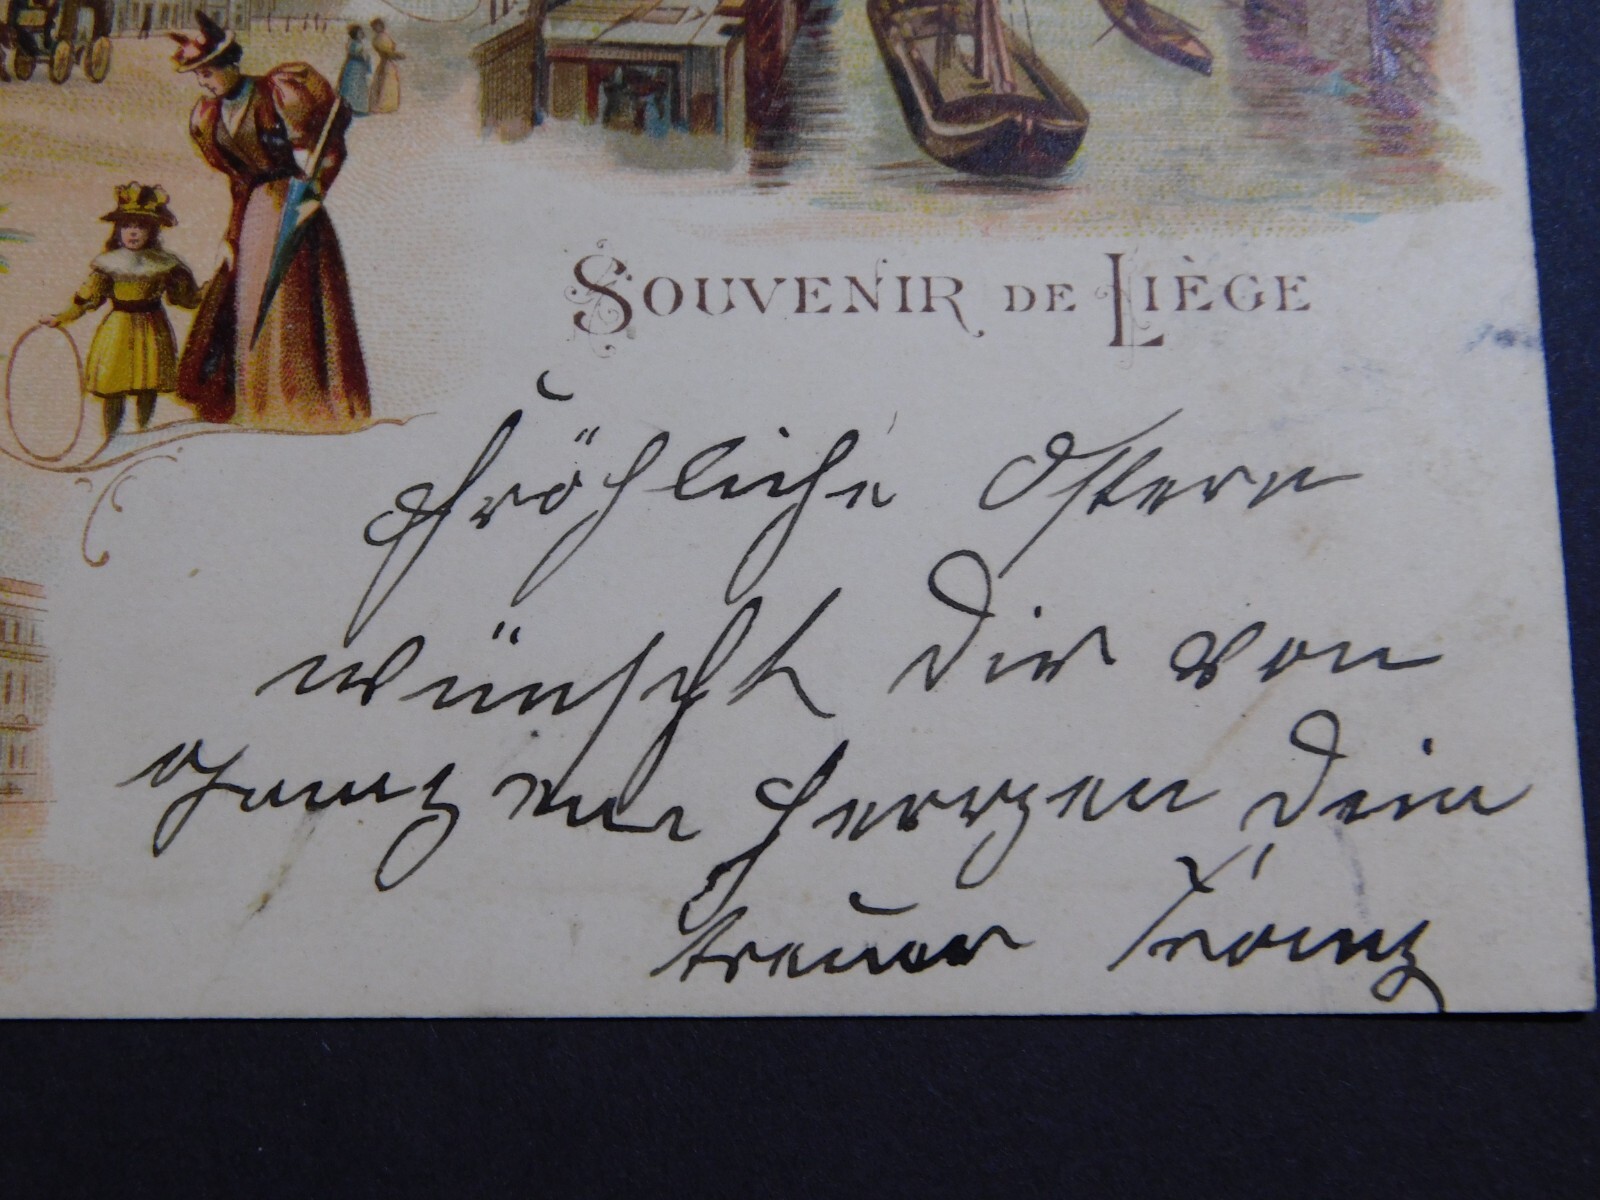 Souvenir de Liège
Fröhliche Ostern
wünscht Dir von
ganzem Herzen Dein
treuer Franz